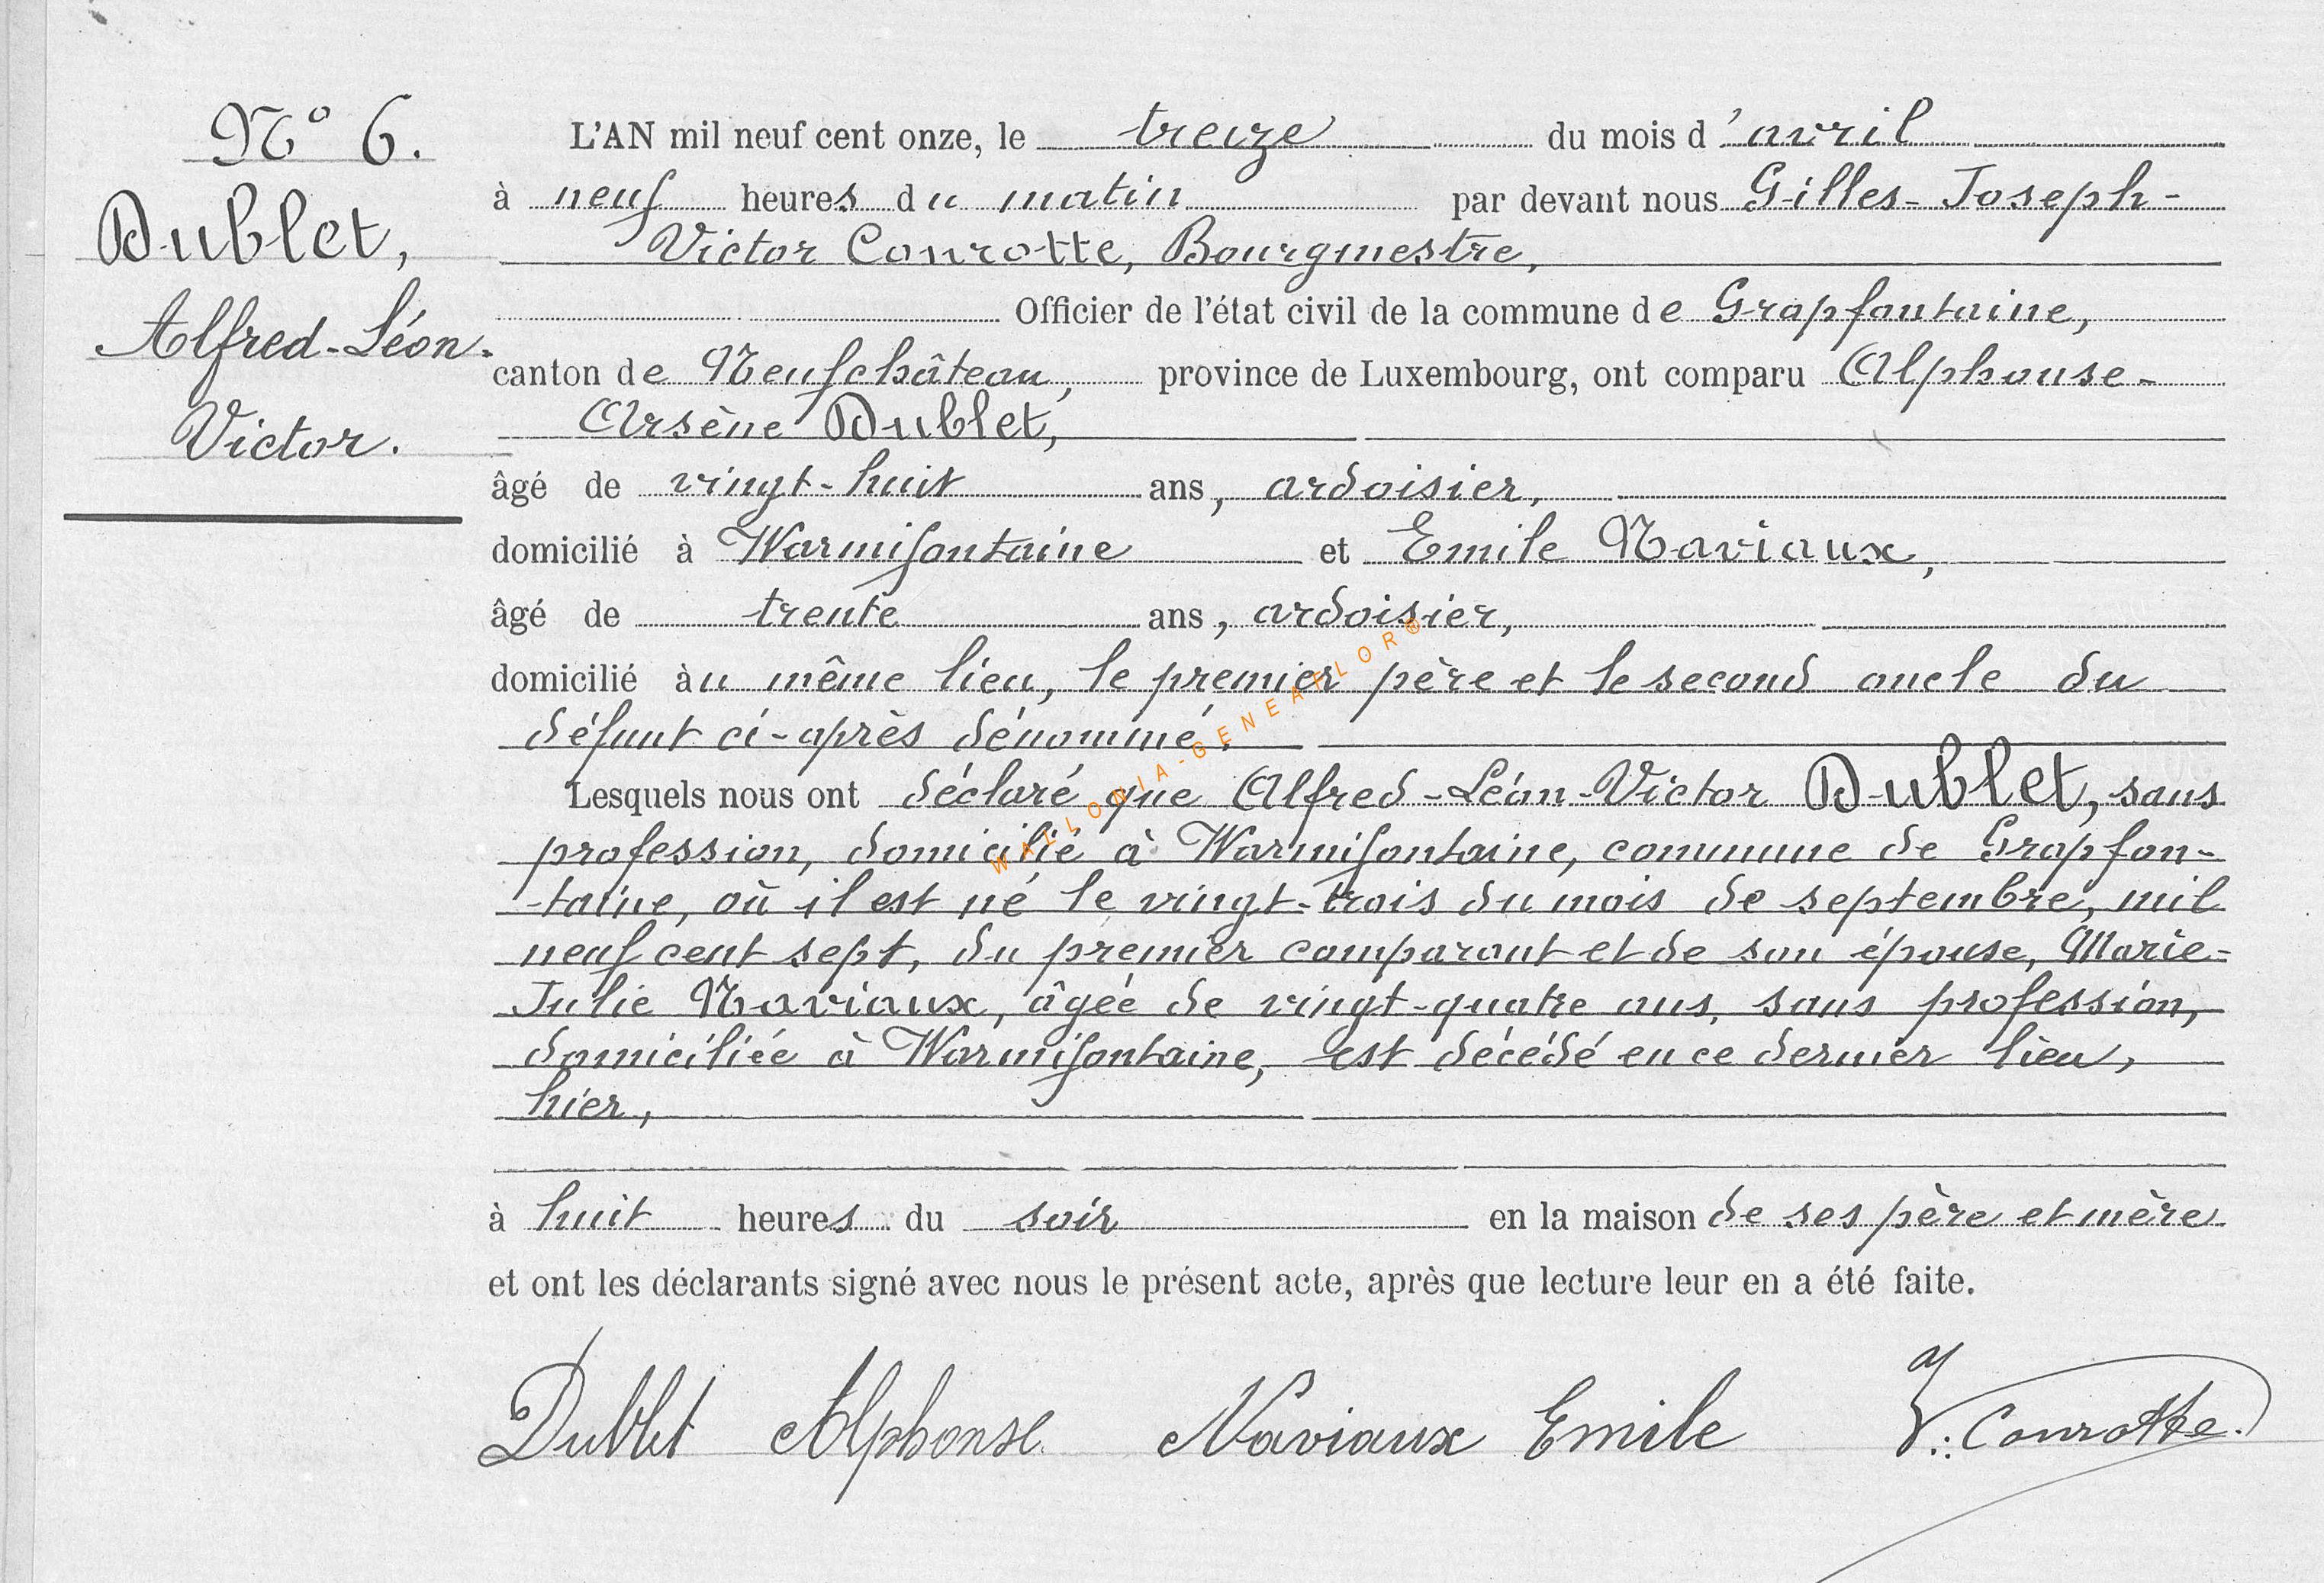 N° 6.
Dublet,
Alfred-Léon-
Victor.
L'AN mil neuf cent onze, le treize du mois d'avril
à neuf heures du matin par devant nous Gilles-Joseph-
Victor Conrotte, Bourgmestre,
Officier de l'état civil de la commune de Grapfontaine,
canton de Neufchâteau, province de Luxembourg, ont comparu Alphonse-
Arsène Dublet,
âgé de vingt-huit ans, ardoisier,
domicilié à Warmifontaine et Emile Naviaux,
âgé de trente ans, ardoisier,
domicilié àu même lieu, le premier père et le second oncle du
défunt ci-après dénommé.
Lesquels nous ont déclaré que Alfred-Léon-Victor Dublet, sans
profession, domicilié à Warmifontaine, commune de Grapfon-
taine, où il est né le vingt-trois du mois de septembre, mil
neuf cent sept, du premier comparant et de son épouse, Marie-
Julie Naviaux, âgée de vingt-quatre ans, sans profession,
domiciliée à Warmifontaine, est décédé en ce dernier lieu,
hier,
à huit heures du soir en la maison de ses père et mère
et ont les déclarants signé avec nous le présent acte, après que lecture leur en a été faite.
Dublet Alphonse Naviaux Emile V. Conrotte.
WALLONIA-GENEAFLOR®